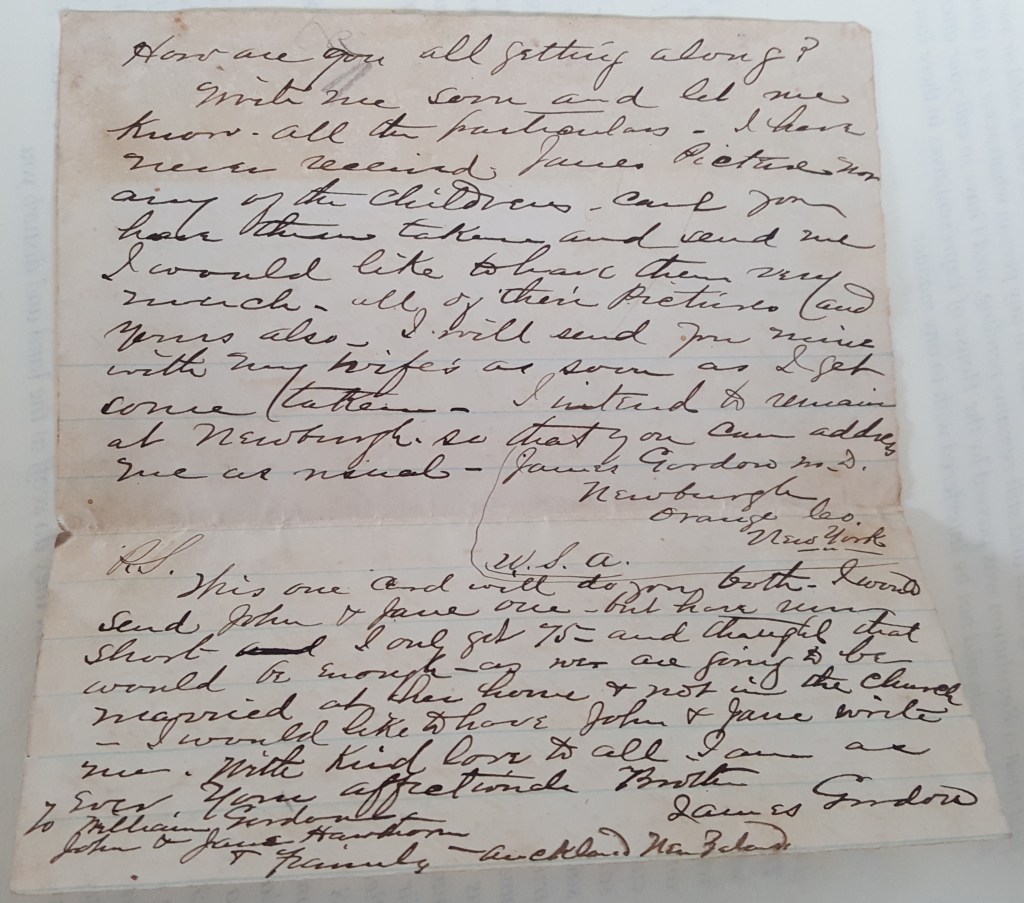 How are you all getting along?
Write me soon and let me
Know. all the particulars - I have
never received James Picture nor
any of the Childrens. cant you
have them taken and send me
I would like to have them very
much - all of their Pictures (and
yours also - I will send you mine
with my wife's as soon as I get
some (taken - I intend to remain
at Newburgh. so that you can address
me as usual - James Gordon M.D.
Newburgh
Orange Co.
New York
U.S.A.
P.S.
This one card will do you both - I would
send John & Jane one - but have run
short and I only get 75 - and thought that
would be enough - as we are going to be
married at her home & not in the Church
- I would like to have John & Jane write
me. With Kind love to all I am as
Ever Your affectionate Brother
James Gordon
To William Gordon
John & Jane Hawthorn
& Family - Auckland New Zeland